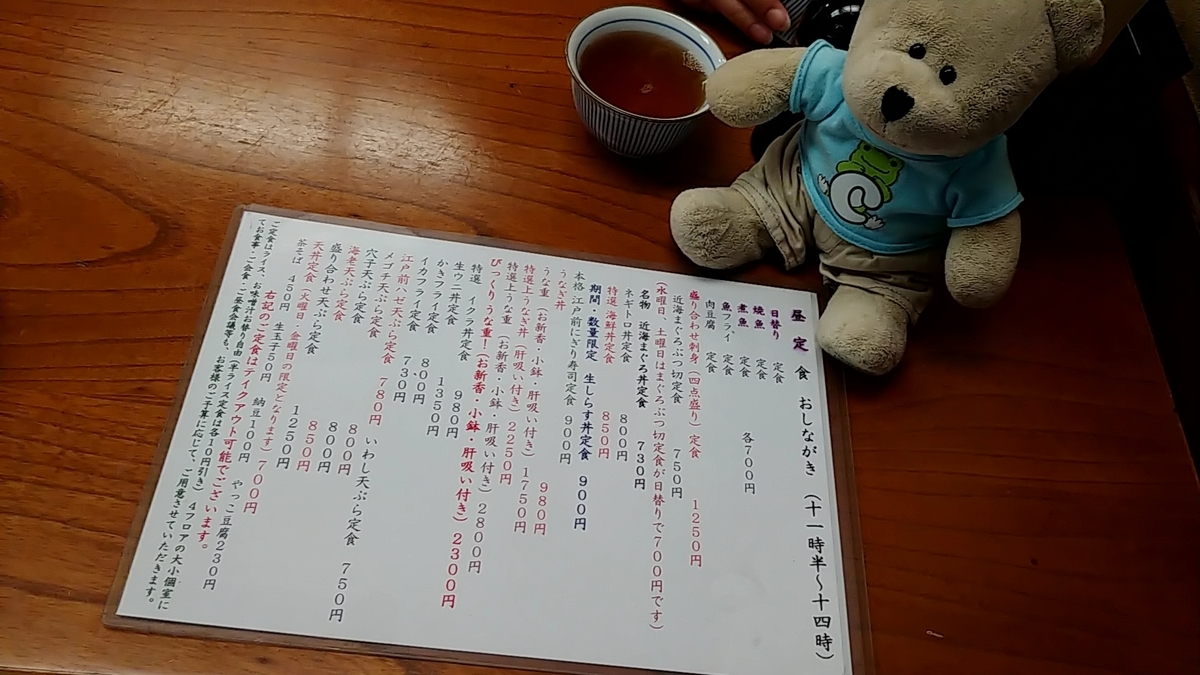 昼定食 おしながき (十一時半〜十四時)
日替り 定食
焼魚 定食
煮魚 定食 各700円
魚フライ 定食
肉豆腐 定食
盛り合わせ刺身(四点盛り)定食 1250円
近海まぐろぶつ切定食 750円
(水曜日、土曜日はまぐろぶつ切定食が日替りで700円です)
名物 近海まぐろ丼定食 730円
ネギトロ丼定食 800円
特選 海鮮丼定食 850円
期間・数量限定 生しらす丼定食 900円
本格 江戸前にぎり寿司定食 900円
うなぎ丼
うな重(お新香・小鉢・肝吸い付き) 980円
特選上うなぎ丼(肝吸い付き) 1750円
特選上うな重(お新香・小鉢・肝吸い付き) 2250円
びっくりうな重!(お新香・小鉢・肝吸い付き) 2300円
特選 イクラ丼定食 2800円
生ウニ丼定食 980円
かきフライ定食 1350円
イカフライ定食 800円
江戸前ハゼ天ぷら定食 730円
メゴチ天ぷら定食 780円
穴子天ぷら定食 いわし天ぷら定食 750円
海老天ぷら定食 800円
盛り合わせ天ぷら定食 800円
天丼定食(火曜日・金曜日の限定となります) 850円
茶そば 450円 生玉子50円 納豆100円 やっこ豆腐230円
右記のご定食はテイクアウト可能でございます。
ご定食はライス、お味噌汁お替り自由(半ライス定食は各10円引き) 4フロアの大小個室に
てお食事・ご会食・ご昼食会議等も、お客様のご予算に応じて、ご用意させていただきます。
C